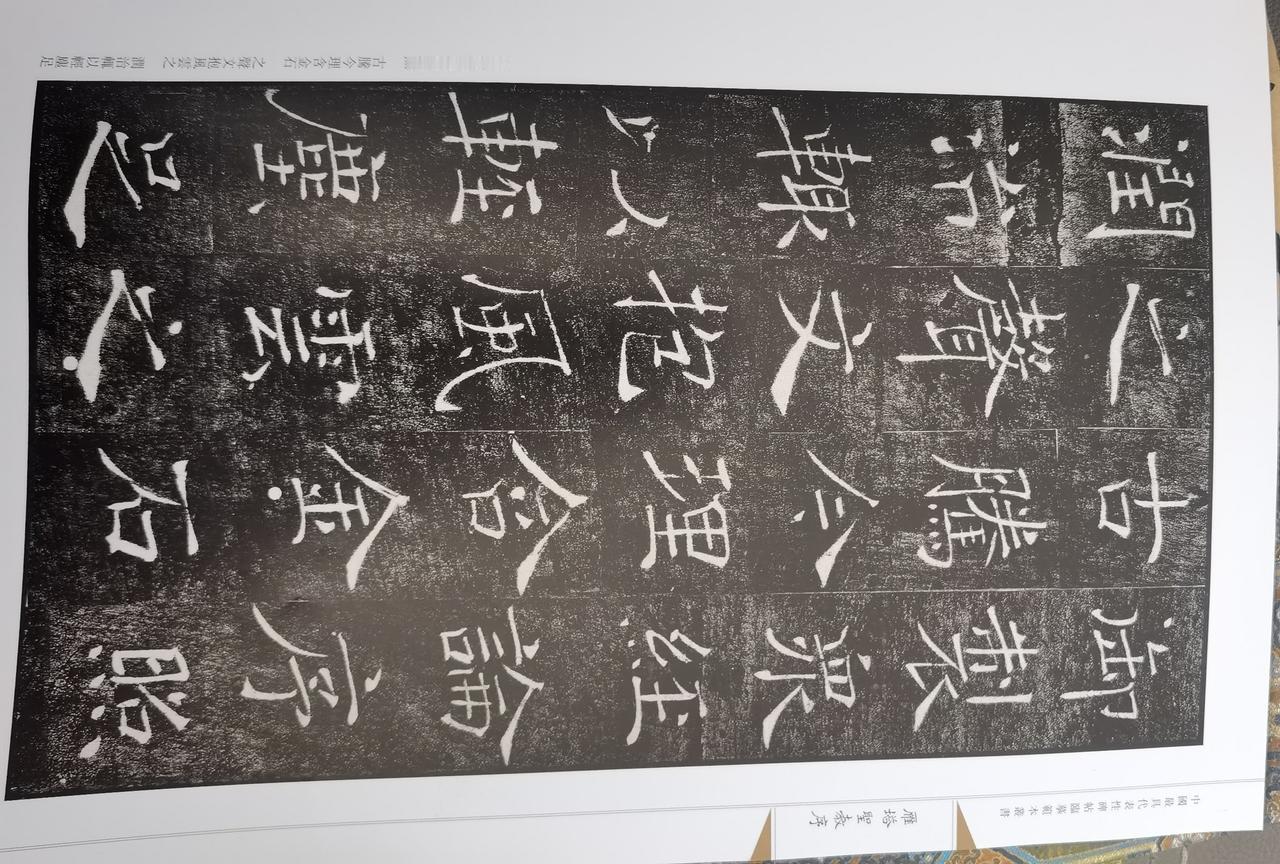 御製眾經論序照
古騰今理含金石
之聲文抱風雲之
潤治輒以輕塵足
古騰今理含金石
之聲文抱風雲之
潤治輒以輕塵足
中國最具代表性碑帖臨摹範本叢書
雁塔聖教序